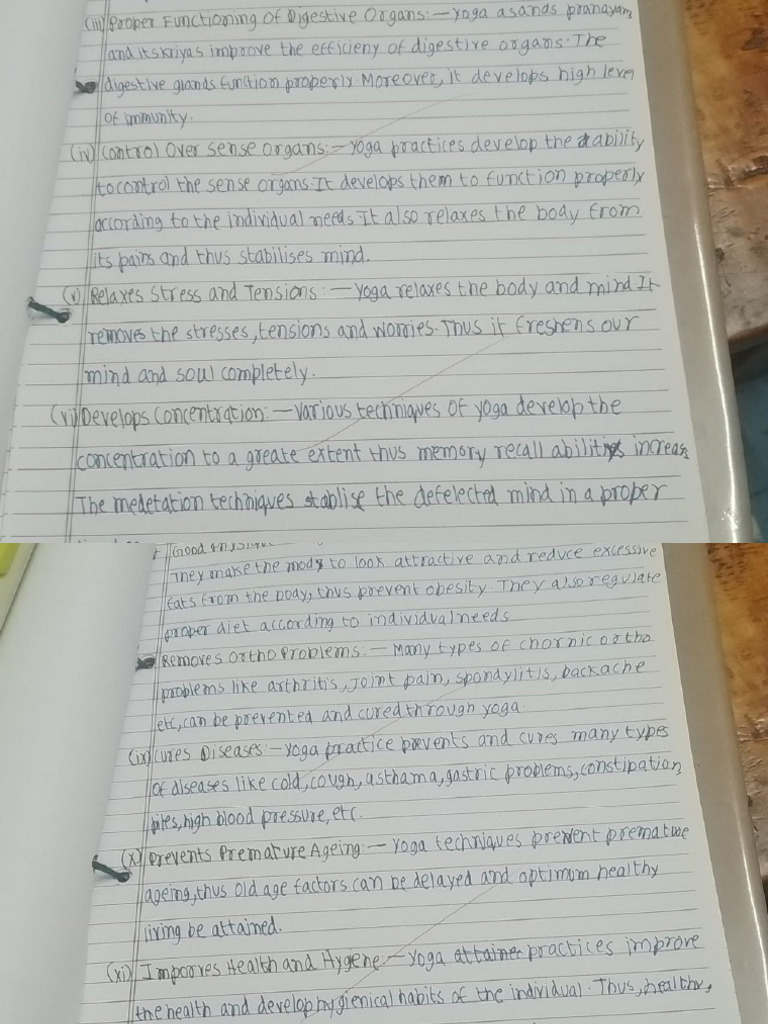 (iii) Proper Functioning of Digestive Organs:- Yoga asanas pranayam
and its kriyas improve the efficieny of digestive organs. The
digestive glands function properly. Moreover, it develops high level
of immunity.
(iv) Control Over sense Organs:- Yoga practices develop the ability
to control the sense organs. It develops them to function properly
according to the individual needs It also relaxes the body from
its pains and thus stabilises mind.
(v) Relaxes Stress and Tensions:- Yoga relaxes the body and mind. It
removes the stresses, tensions and worries. Thus it freshens our
mind and soul completely.
(vi) Develops Concentration:- Various techniques of yoga develop the
concentration to a greate extent thus memory recall abilities increas
The medetation techniques stablise the defelected mind in a proper
Good
They make the mody to look attractive and reduce excessive
fats from the body, thus prevent obesity. They also regulate
proper diet according to individual needs
Removes Ortho Problems:- Many types of chornic ortho
problems like arthritis, Joint pain, spondylitis, backache
etc, can be prevented and cured through yoga.
(ix) Cures Diseases:- Yoga practice prevents and cures many types
of diseases like cold, cough, asthama, gastric problems, constipation
piles, high blood pressure, etc.
(x) Prevents Premature Ageing:- Yoga techniques prevent prematue
ageing, thus old age factors can be delayed and optimom healthy
living be attained.
(xi) Imporves Health and Hygene:- Yoga attaine practices improve
the health and develop hygienical habits of the individual. Thus, healthy,